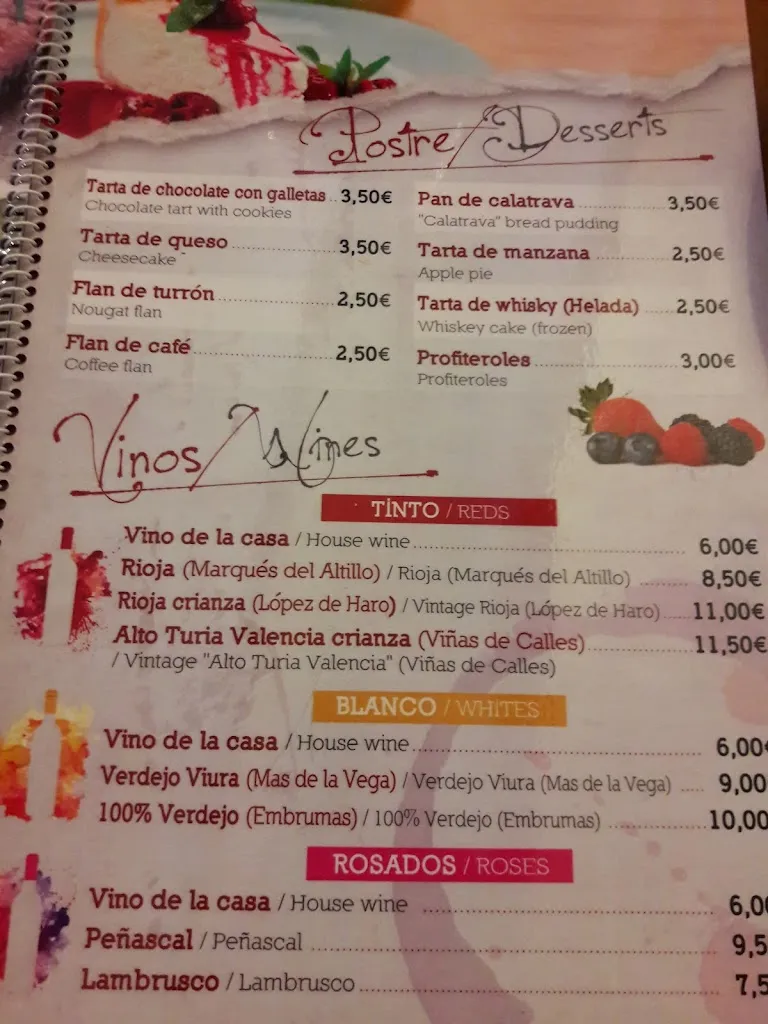 Postre/Desserts
Tarta de chocolate con galletas..3,50€
Chocolate tart with cookies
Tarta de queso..........3,50€
Cheesecake
Flan de turrón..........2,50€
Nougat flan
Flan de café..........2,50€
Coffee flan
Pan de calatrava..........3,50€
"Calatrava" bread pudding
Tarta de manzana..........2,50€
Apple pie
Tarta de whisky (Helada)......2,50€
Whiskey cake (frozen)
Profiteroles..........3,00€
Profiteroles
Vinos/Wines
TINTO / REDS
Vino de la casa / House wine..........6,00€
Rioja (Marqués del Altillo) / Rioja (Marqués del Altillo)..........8,50€
Rioja crianza (López de Haro) / Vintage Rioja (López de Haro).....11,00€
Alto Turia Valencia crianza (Viñas de Calles)..........11,50€
/ Vintage "Alto Turia Valencia" (Viñas de Calles)
BLANCO / WHITES
Vino de la casa / House wine..........6,00€
Verdejo Viura (Mas de la Vega) / Verdejo Viura (Mas de la Vega) ..... 9,00
100% Verdejo (Embrumas) / 100% Verdejo (Embrumas) ..........10,00
ROSADOS / ROSES
Vino de la casa / House wine ..........6,00
Peñascal / Peñascal ..........9,5
Lambrusco / Lambrusco..........7,5